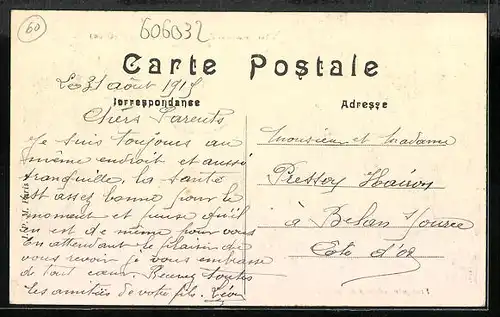 60
606032
Carte Postale
Correspondance
Adresse
Le 31 août 1915
Chers Parents
Je suis toujours au
même endroit et aussi
tranquille, la santé
est assez bonne pour le
moment et pense qu'il
en est de même pour vous
En attendant le plaisir de
vous revoir je vous embrasse
de tout cœur. Recevez toutes
les amitiés de votre fils. Léon
Monsieur et Madame
Pressoy
à Belan s/ Ource
Cote d'or